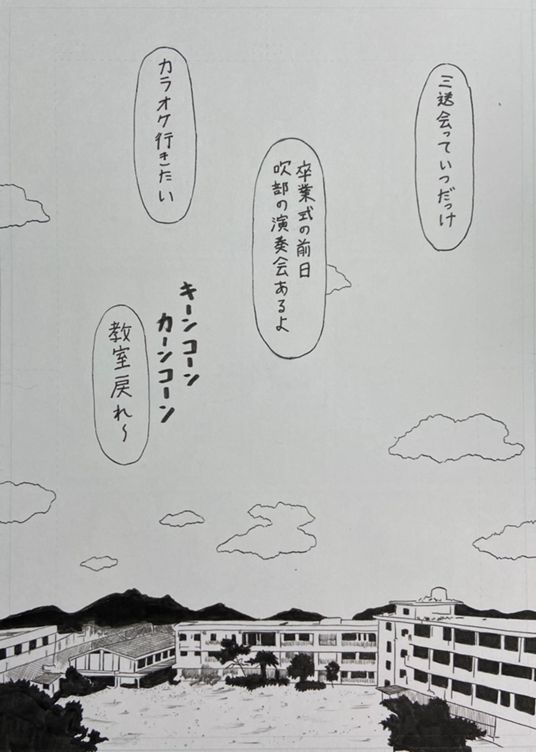 三送会っていつだっけ
卒業式の前日
吹部の演奏会あるよ
カラオケ行きたい
キーンコーン
カーンコーン
教室戻れ〜